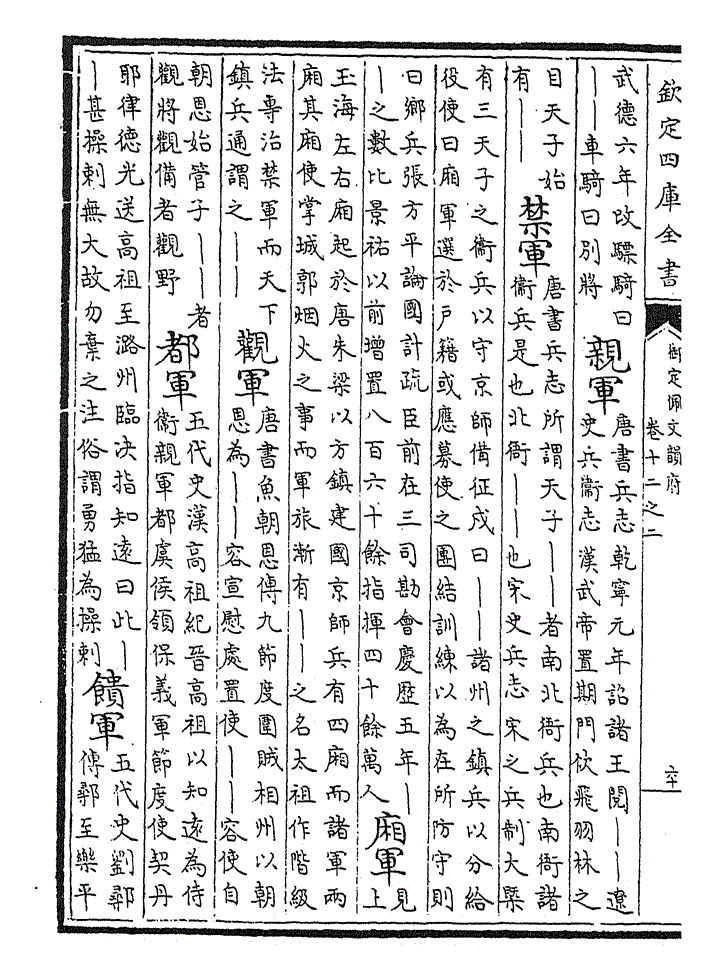 欽定四庫全書
御定佩文韻府
卷十二之二
六十
武德六年改驃騎曰
——車騎曰別將
親軍
唐書兵志乾寧元年詔諸王閱——遼
史兵衞志漢武帝置期門佽飛羽林之
目天子始
有——
禁軍
唐書兵志所謂天子——者南北衙兵也南衙諸
衞兵是也北衙——也宋史兵志宋之兵制大槩
有三天子之衞兵以守京師備征戍曰——諸州之鎮兵以分給
役使曰廂軍選於戶籍或應募使之團結訓練以為在所防守則
曰鄉兵張方平論國計疏臣前在三司勘會慶歴五年—
—之數比景祐以前增置八百六十餘指揮四十餘萬人
廂軍
見
上
玉海左右廂起於唐朱梁以方鎮建國京師兵有四廂而諸軍兩
廂其廂使掌城郭烟火之事而軍旅漸有——之名太祖作階級
法專治禁軍而天下
鎮兵通謂之——
觀軍
唐書魚朝恩傳九節度圍賊相州以朝
恩為——容宣慰處置使——容使自
朝恩始管子——者
觀將觀備者觀野
都軍
五代史漢高祖紀晉高祖以知遠為侍
衞親軍都虞侯領保義軍節度使契丹
耶律德光送高祖至潞州臨決指知遠曰此—
—甚操剌無大故勿棄之注俗謂勇猛為操剌
饋軍
五代史劉鄩
傳鄩至樂平